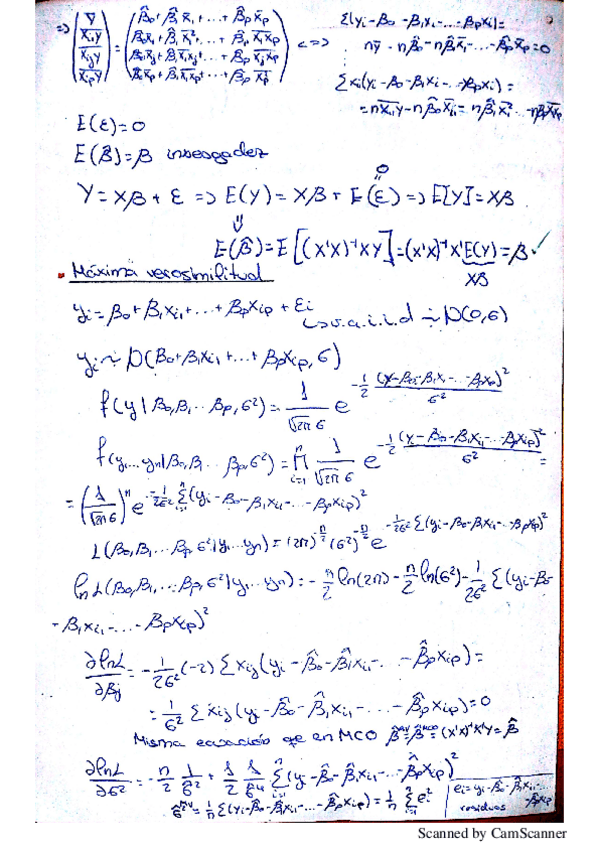 => (ȳ / x̄ᵢ₁y / x̄ᵢⱼy / x̄ᵢₚy) = (β̂₀+β̂₁x̄₁+...+β̂ₚx̄ₚ / β̂₀x̄₁+β̂₁x̄₁²+...+β̂ₚx̄₁x̄ₚ / β̂₀x̄ⱼ+β̂₁x̄₁x̄ⱼ+...+β̂ₚx̄ⱼx̄ₚ / β̂₀x̄ₚ+β̂₁x̄₁x̄ₚ+...+β̂ₚx̄ₚ²) <=>
Σ(yᵢ-β₀-β₁xᵢ-...-βₚxᵢ)=
nȳ-nβ̂₀-nβ̂₁x̄₁-...-β̂ₚx̄ₚ=0
Σxᵢ(yᵢ-β₀-β₁xᵢ-...-βₚxᵢ)=
E(ε)=0
E(β̂)=β insesgadez
Y=Xβ+ε => E(Y)=Xβ+E(ε) => E[Y]=Xβ
0
E(β̂)=E[(X'X)⁻¹XY]=(X'X)⁻¹X'E(Y)=β ✓
Xβ
Máxima verosimilitud
yᵢ=β₀+β₁xᵢ₁+...+βₚxᵢₚ+εᵢ
↳ v.a.i.i.d ~ N(0,σ)
yᵢ~N(β₀+β₁xᵢ₁+...+βₚxᵢₚ,σ)
f(y|β₀,β₁...βₚ,σ²)= 1/(√2π σ) e^(-1/2 (y-β₀-β₁x₁-...-βₚxₚ)²/σ²)
f(y₁...yₙ|β₀,β₁...βₚ,σ²)= Π(i=1,n) 1/(√2π σ) e^(-1/2 (y-β₀-β₁xᵢ₁-...-βₚxᵢₚ)²/σ²) =
=(1/(√2π σ))ⁿ e^(-1/2σ² Σ(yᵢ-β₀-β₁xᵢ₁-...-βₚxᵢₚ)²)
L(β₀,β₁...βₚ σ²|y₁...yₙ)=(2π)^(-n/2) (σ²)^(-n/2) e^(-1/2σ² Σ(yᵢ-β₀-β₁xᵢ₁-...-βₚxᵢₚ)²)
ln L(β₀,β₁,...,βₚ,σ²|y₁...yₙ)=-n/2 ln(2π)-n/2 ln(σ²)-1/2σ² Σ(yᵢ-β₀-
-β₁xᵢ₁-...-βₚxᵢₚ)²
∂lnL/∂βⱼ = -1/2σ² (-2) Σxᵢⱼ(yᵢ-β̂₀-β̂₁xᵢ₁-...-β̂ₚxᵢₚ)=
= 1/σ² Σxᵢⱼ(yᵢ-β̂₀-β̂₁xᵢ₁-...-β̂ₚxᵢₚ)=0
Misma ecuación que en MCO β̂ᴹⱽ=β̂ᴹᶜᴼ=(X'X)⁻¹X'Y=β̂
∂lnL/∂σ² = -n/2 1/σ̂² + 1/2 1/σ̂⁴ Σ(i=1,n)(yᵢ-β̂₀-β̂₁xᵢ₁-...-β̂ₚxᵢₚ)²
σ̂²ᴹⱽ=1/n Σ(yᵢ-β̂₀-β̂₁xᵢ₁-...-β̂ₚxᵢₚ)=1/n Σ(i=1,n) eᵢ²
eᵢ=yᵢ-β̂₀-β̂₁xᵢ₁...
residuos -β̂ₚxᵢₚ
Scanned by CamScanner